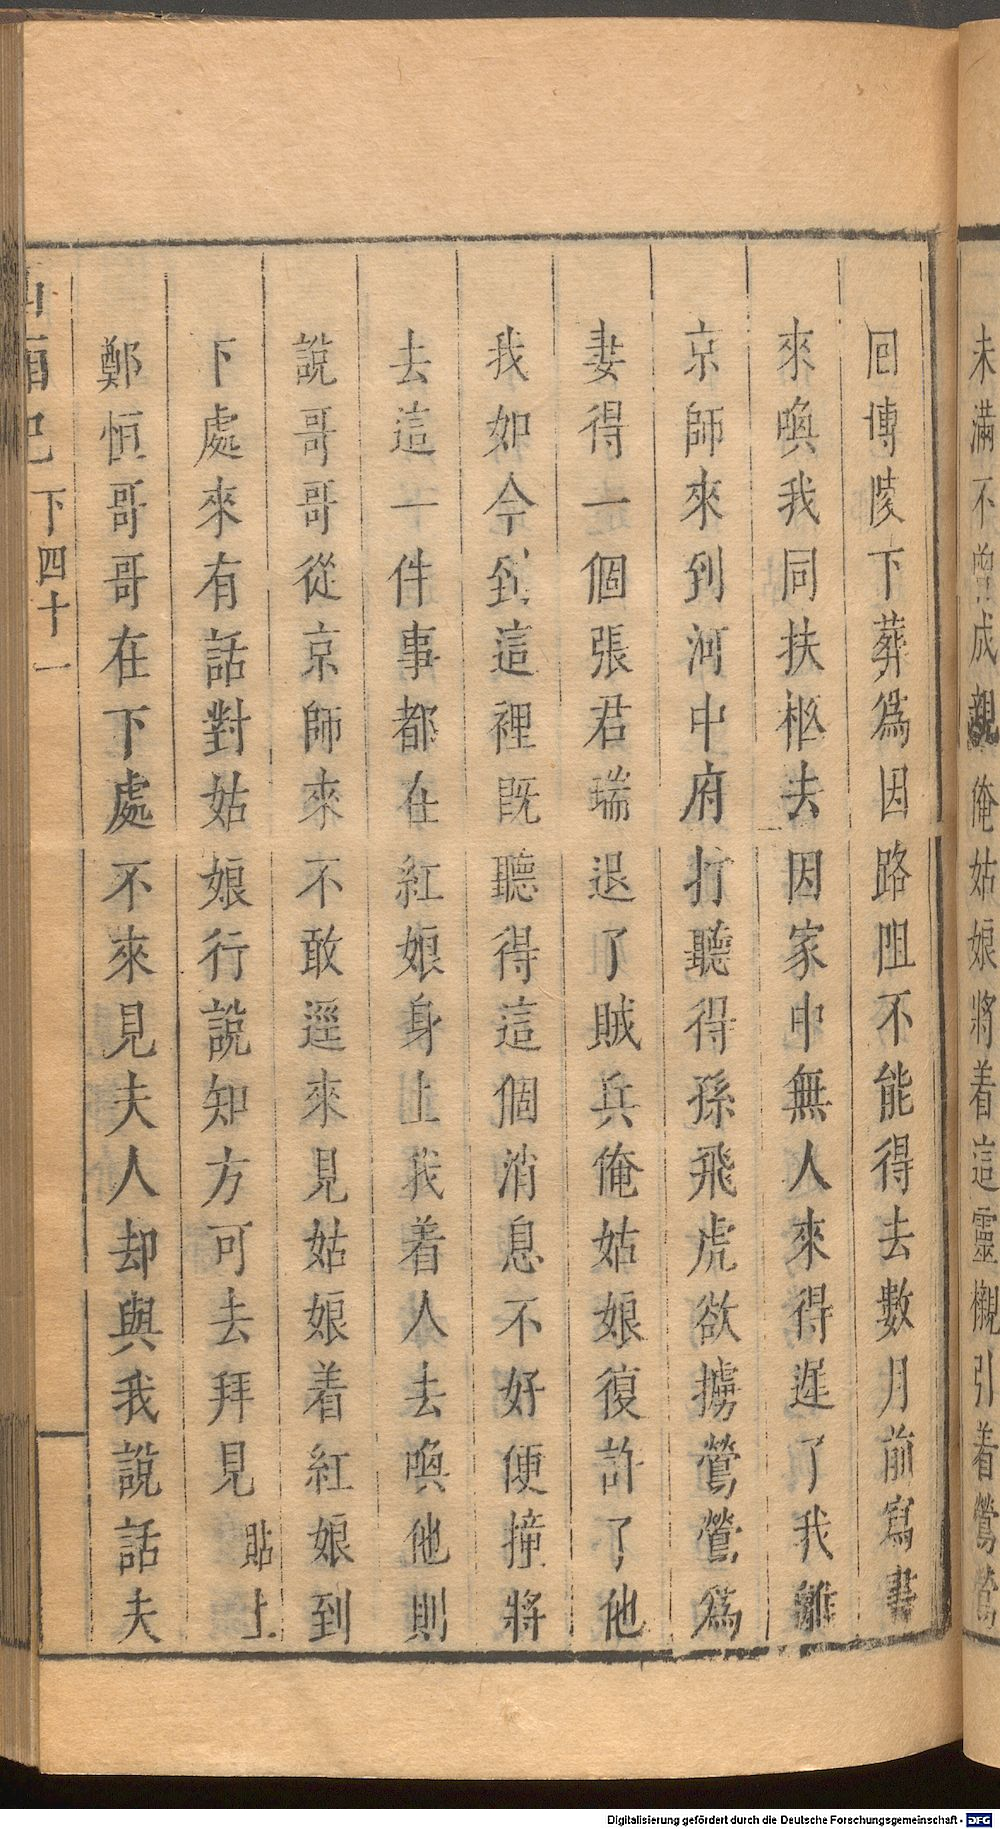 未滿不曾成親俺姑娘將着這靈櫬引着鶯鶯
回博陵下葬爲因路阻不能得去數月前寫書
來喚我同扶柩去因家中無人來得遲了我離
京師來到河中府打聽得孫飛虎欲擄鶯鶯爲
妻得一個張君瑞退了賊兵俺姑娘復許了他
我如今到這裡既聽得這個消息不好便撞將
去這一件事都在紅娘身上我着人去喚他則
說哥哥從京師來不敢逕來見姑娘着紅娘到
下處來有話對姑娘行說知方可去拜見貼上
鄭恒哥哥在下處不來見夫人却與我說話夫
西廂記 下四十一
Digitalisierung gefördert durch die Deutsche Forschungsgemeinschaft - DFG